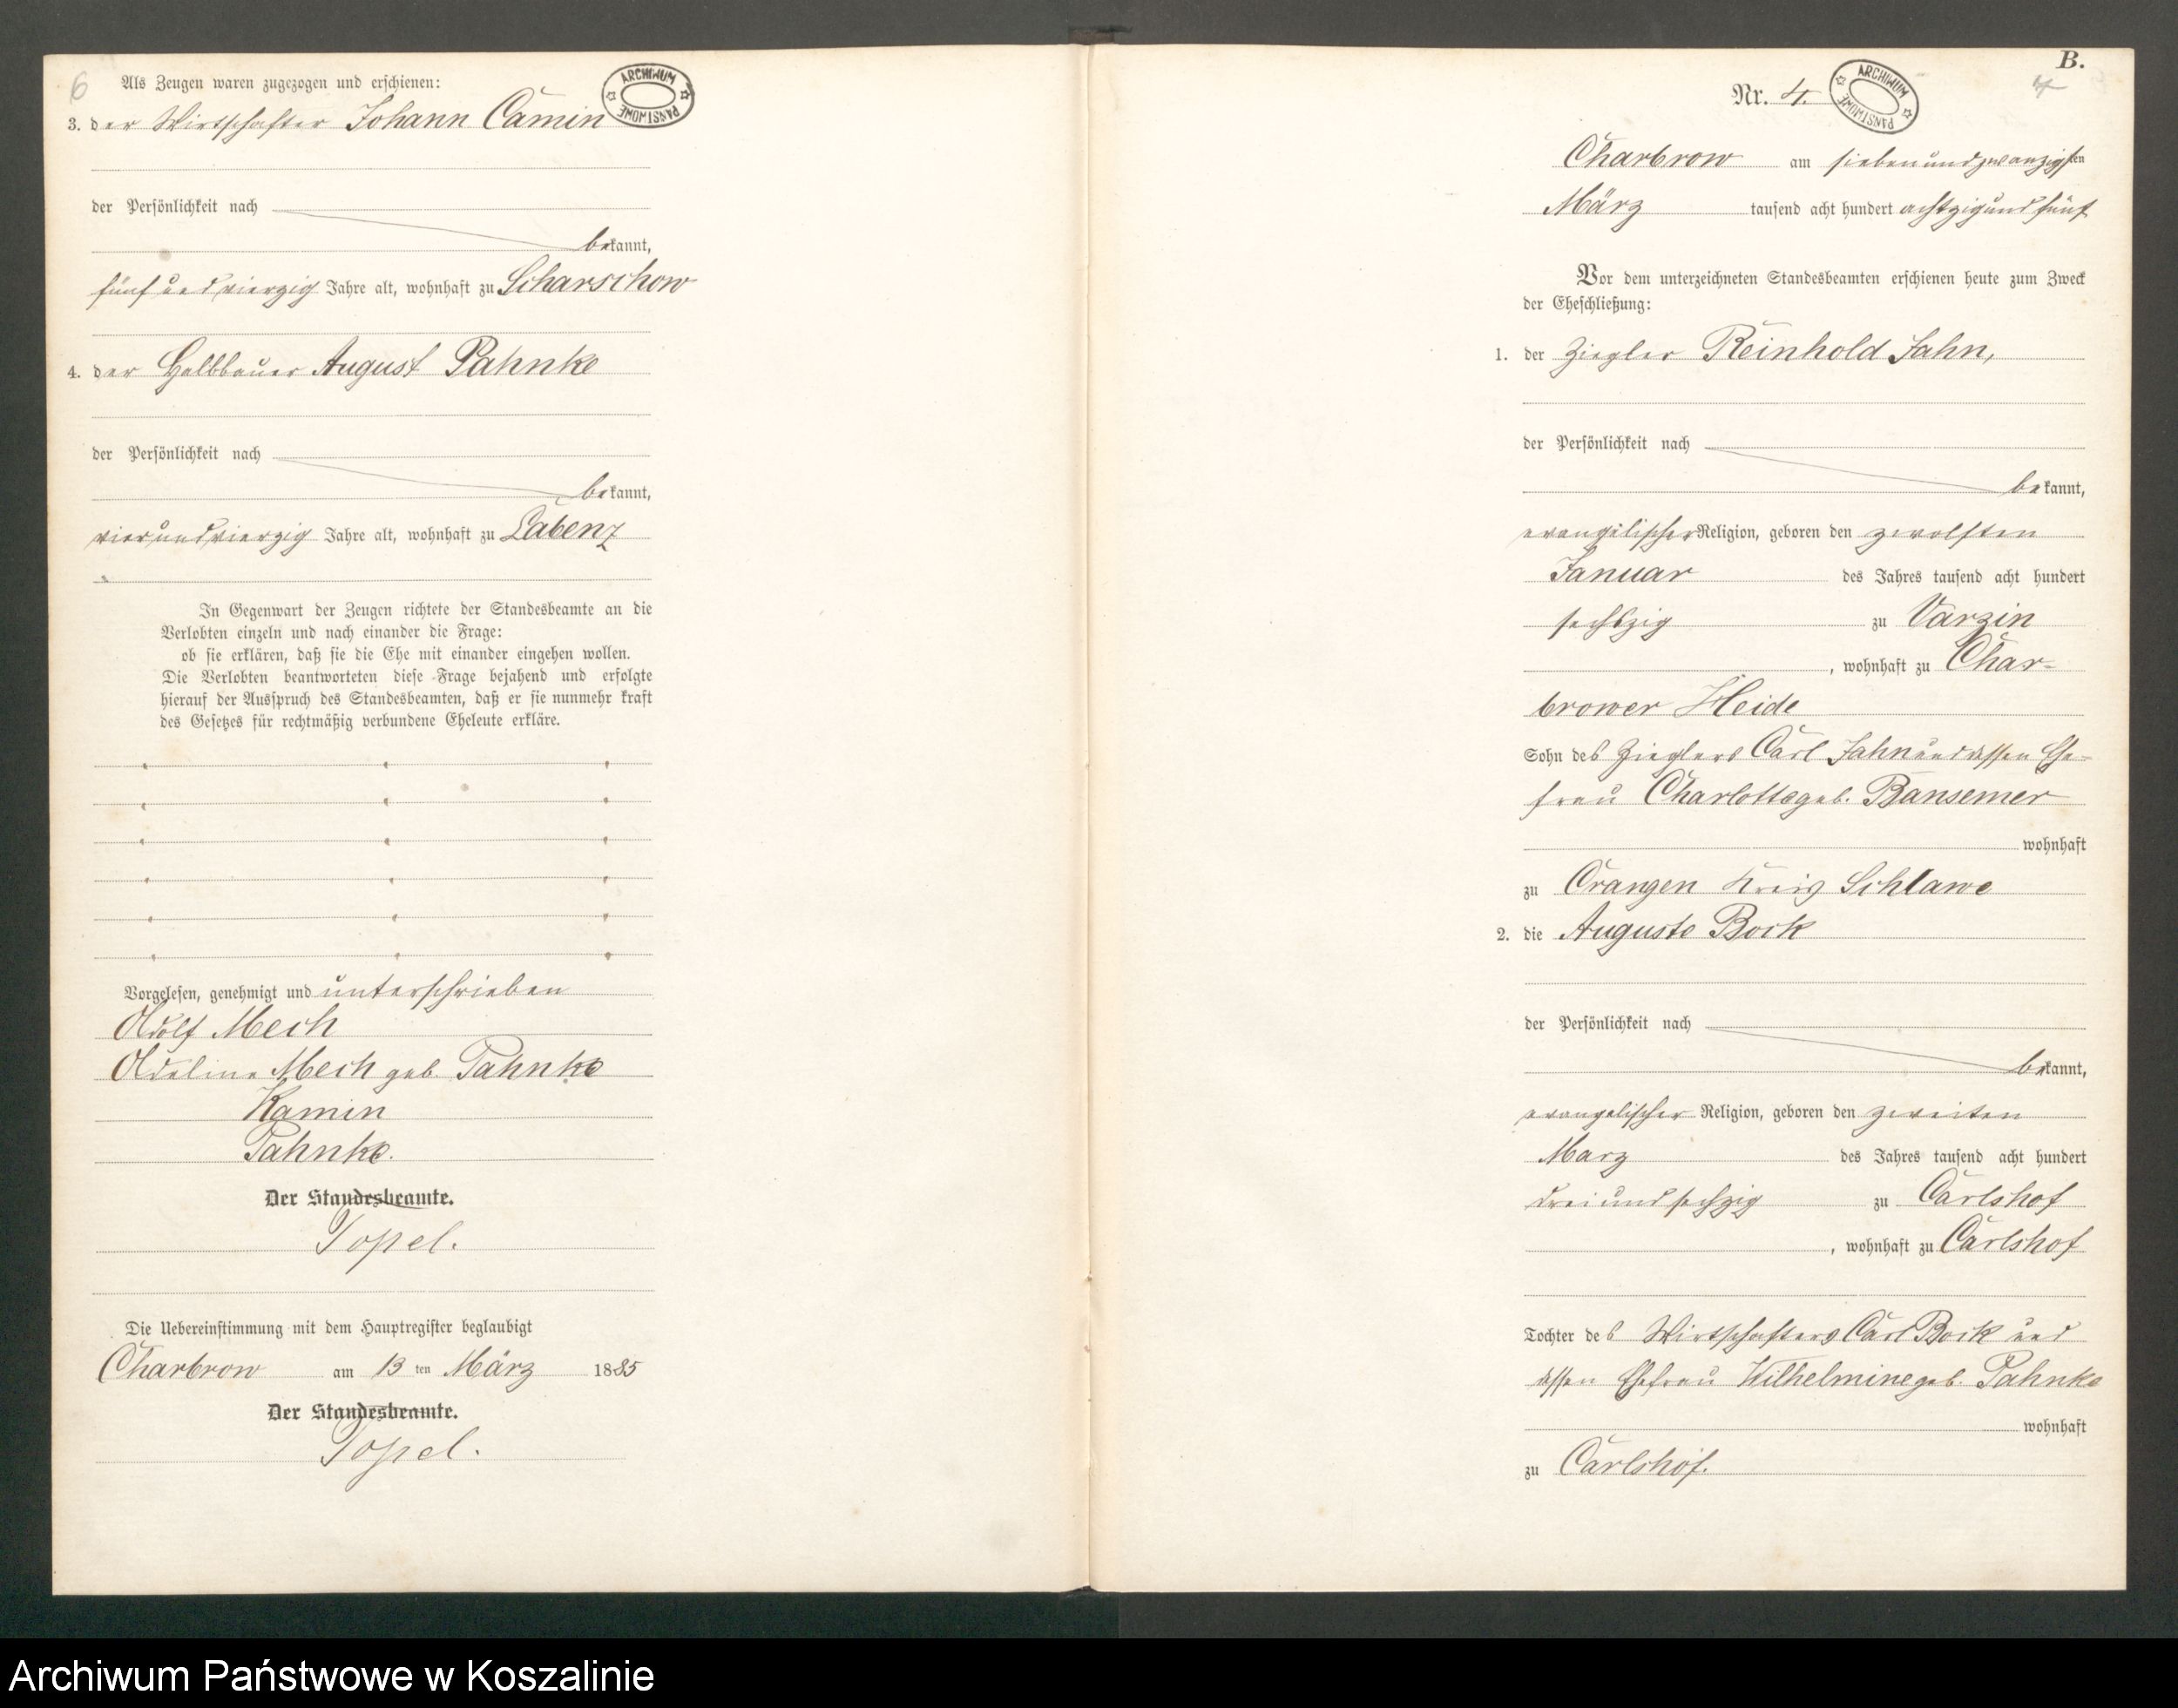 6
Als Zeugen waren zugezogen und erschienen:
3. der Wirtschafter Johann Camin
ARCHIWUM PAŃSTWOWE
der Persönlichkeit nach
bekannt,
fünf und vierzig Jahre alt, wohnhaft zu Scharschow
4. der Halbbauer August Pahnke
der Persönlichkeit nach
bekannt,
vierundvierzig Jahre alt, wohnhaft zu Labenz
In Gegenwart der Zeugen richtete der Standesbeamte an die
Verlobten einzeln und nach einander die Frage:
ob sie erklären, daß sie die Ehe mit einander eingehen wollen.
Die Verlobten beantworteten diese Frage bejahend und erfolgte
hierauf der Ausspruch des Standesbeamten, daß er sie nunmehr kraft
des Gesetzes für rechtmäßig verbundene Eheleute erkläre.
Vorgelesen, genehmigt und unterschrieben
Adolf Mech
Adeline Mech geb. Pahnke
Kamin
Pahnke.
Der Standesbeamte.
Topel.
Die Uebereinstimmung mit dem Hauptregister beglaubigt
Charbrow am 13 ten März 1885
Der Standesbeamte.
Topel.
B.
Nr. 4.
ARCHIWUM PAŃSTWOWE
Charbrow am siebenundzwanzigsten
März tausend acht hundert achtzigundfünf
Vor dem unterzeichneten Standesbeamten erschienen heute zum Zweck
der Eheschließung:
1. der Ziegler Reinhold Jahn,
der Persönlichkeit nach
bekannt,
evangelischer Religion, geboren den zwolften
Januar des Jahres tausend acht hundert
sechszig zu Varzin
, wohnhaft zu Char-
brower Heide
Sohn des Zieglers Carl Jahn und dessen Ehe-
frau Charlotte geb. Bansemer
wohnhaft
zu Crangen Kreis Schlawe
2. die Auguste Bock
der Persönlichkeit nach
bekannt,
evangelischer Religion, geboren den zweiten
Marz des Jahres tausend acht hundert
dreiundsechzig zu Carlshof
, wohnhaft zu Carlshof
Tochter des Wirtschafters Carl Bock und
dessen Ehefrau Wilhelmine geb. Pahnke
wohnhaft
zu Carlshof.
Archiwum Państwowe w Koszalinie